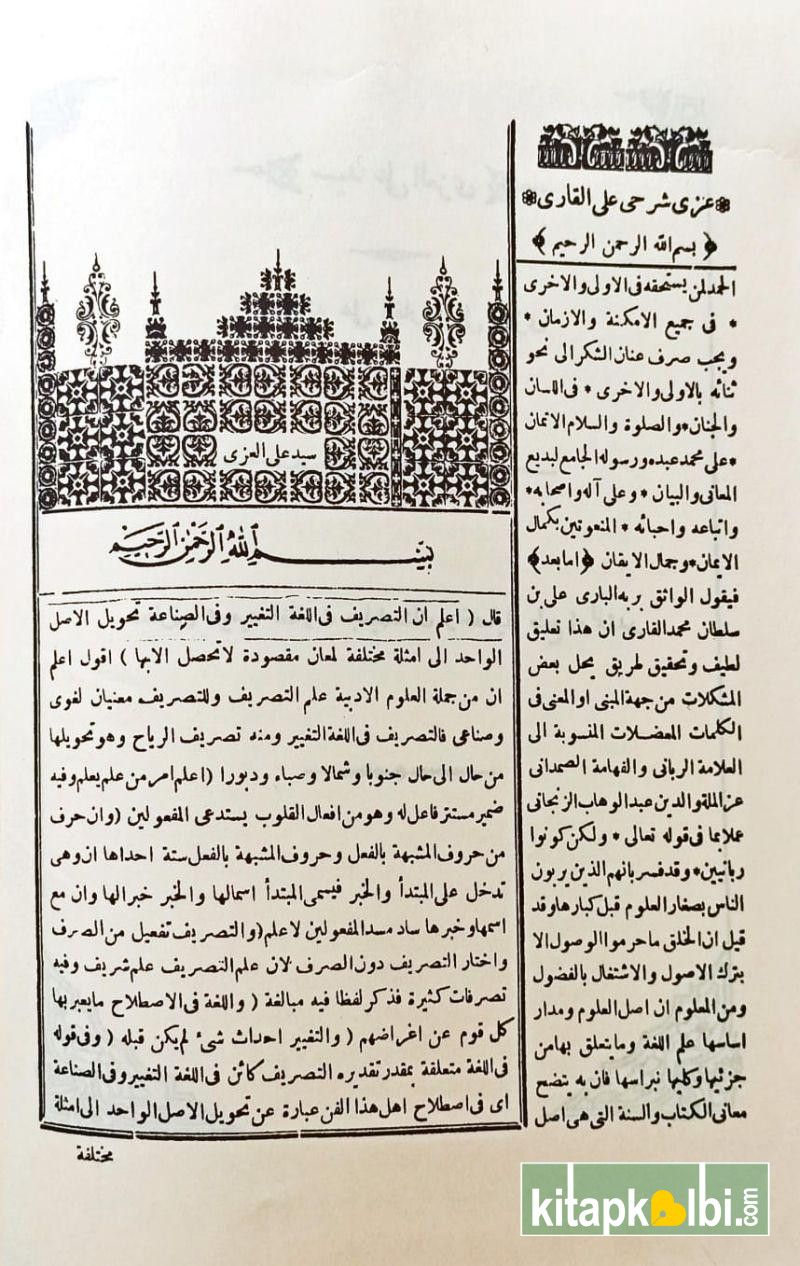 ❋ عزى شرحى على القارى ❋
﴿ بسم الله الرحمن الرحيم ﴾
الحمد لمن يستحقه فى الاولى والاخرى
* فى جميع الامكنة والازمان *
ويجب صرف عنان الشكر الى نحو
ثنائه بالاولى والاخرى * فى اللسان
والجنان * والصلوة والسلام الاتمان
* على محمد عبده ورسوله الجامع لبديع
المعانى والبيان * وعلى آله واصحابه *
واتباعه واحبائه * المنعوتين بكمال
الايمان * وجمال الايقان ﴿ اما بعد ﴾
فيقول الواثق بربه البارى على بن
سلطان محمد القارى ان هذا تعليق
لطيف وتحقيق لطريق يحل بعض
المشكلات من جهة المبنى او المعنى فى
الكلمات المعضلات المنسوبة الى
العلامة الربانى والفهامة الصمدانى
عز الملة والدين عبد الوهاب الزنجانى
عملا بما فى قوله تعالى * ولكن كونوا
ربانيين * وقد فسر بانهم الذين يربون
الناس بصغار العلوم قبل كبارها وقد
قيل ان الخلق ما حرموا الوصول الا
بترك الاصول والاشتغال بالفضول
ومن المعلوم ان اصل العلوم ومدار
اساسها علم اللغة وما يتعلق بها من
جزئيها وكليها نبراسها فان به يتضح
معانى الكتاب والسنة التى هى اصل
سيد على العزى
بسم الله الرحمن الرحيم
قال ( اعلم ان التصريف فى اللغة التغيير وفى الصناعة تحويل الاصل
الواحد الى امثلة مختلفة لمعان مقصودة لا تحصل الا بها ) اقول اعلم
ان من جملة العلوم الادبية علم التصريف وللتصريف معنيان لغوى
وصناعى فالتصريف فى اللغة التغيير ومنه تصريف الرياح وهو تحويلها
من حال الى حال جنوبا وشمالا وصباء ودبورا ( اعلم امر من علم يعلم وفيه
ضمير مستتر فاعل له وهو من افعال القلوب يستدعى المفعولين ( وان حرف
من حروف المشبهة بالفعل وحروف المشبهة بالفعل ستة احداها ان وهى
تدخل على المبتدأ والخبر فيسمى المبتدأ اسمالها والخبر خبرالها وان مع
اسمها وخبرها ساد مسد المفعولين لاعلم ( والتصريف تفعيل من الصرف
واختار التصريف دون الصرف لان علم التصريف علم شريف وفيه
تصرفات كثيرة فذكر لفظا فيه مبالغة ( واللغة فى الاصطلاح ما يعبر بها
كل قوم عن اغراضهم ( والتغيير احداث شئ لم يكن قبله ( وفى قوله
فى اللغة متعلقة بمقدر تقديره التصريف كائن فى اللغة التغيير وفى الصناعة
اى فى اصطلاح اهل هذا الفن عبارة عن تحويل الاصل الواحد الى امثلة
مختلفة
kitapkalbi.com